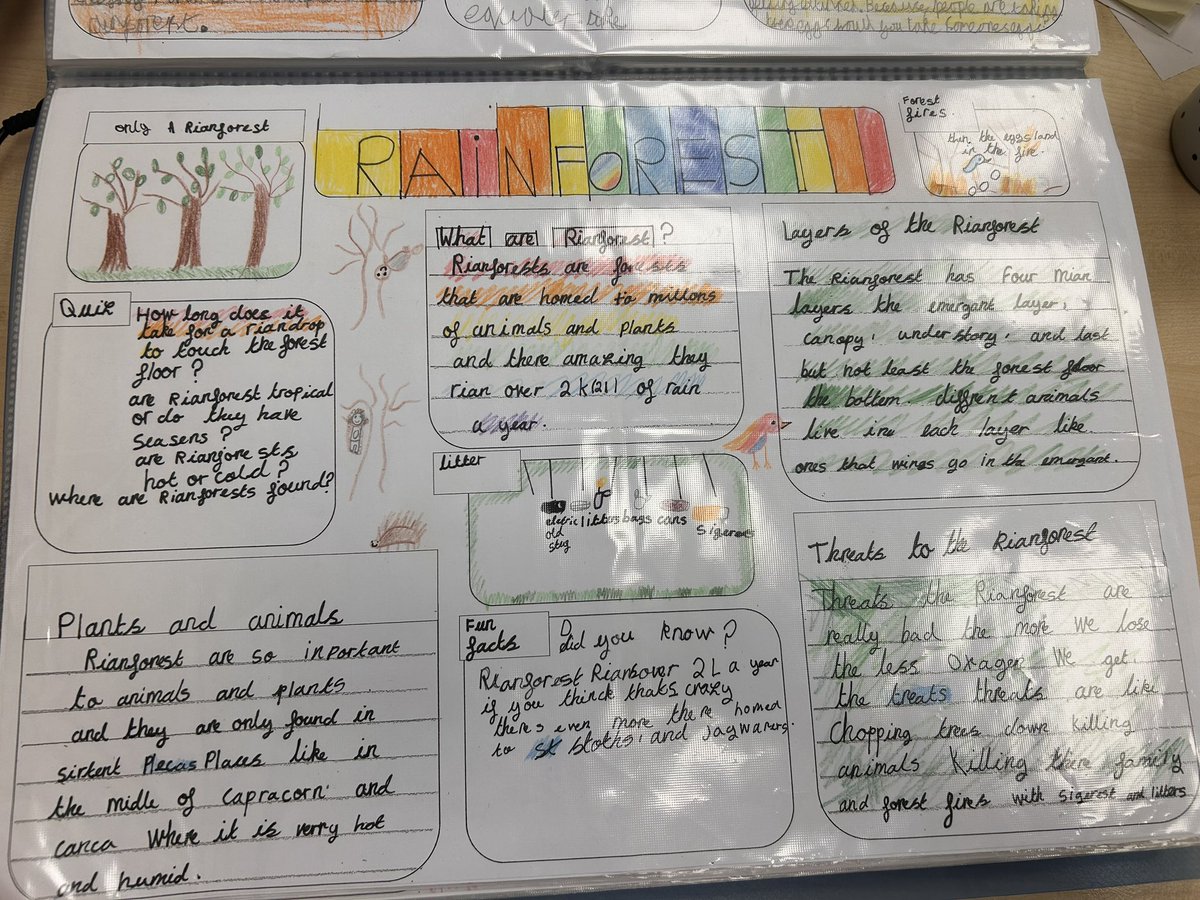 equator take
only A Rianforest
RAINFOREST
Forest
fires.
thin the eggs land
in the fire.
Quie
How long does it
take for a riandrop
to touch the forest
floor ?
are Rianforest tropical
or do they have
seasens ?
are Rianforests
hot or cold ?
where are Rianforests found?
What are Rianforest ?
Rianforests are forests
that are homed to millons
of animals and plants
and there amazing they
rian over 2k(2l) of rain
a year.
Layers of the Rianforest
The Rianforest has four mian
layers the emergant layer,
canopy, understory, and last
but not least the forest floor
the bottem diffrent animals
live in each layer like
ones that wings go in the emergant.
litter
eletric litters bags cans Sigerees
old
Plants and animals
Rianforest are so inportant
to animals and plants
and they are only found in
sirtent Plecas Places like in
the midle of Capracorn and
canca Where it is verry hot
and humid.
Fun
facts
did you know ?
Rianforest Rian over 2L a year
if you thinck thats crazy
theres even more there homed
to sk sloths, and jagwarers.
Threats to the Rianforest
Threats the Rianforest are
really bad the more We lose
the less oxagen We get.
the treats threats are like
Chopping trees down killing
animals Killing there family
and forest fires with sigerest and litters